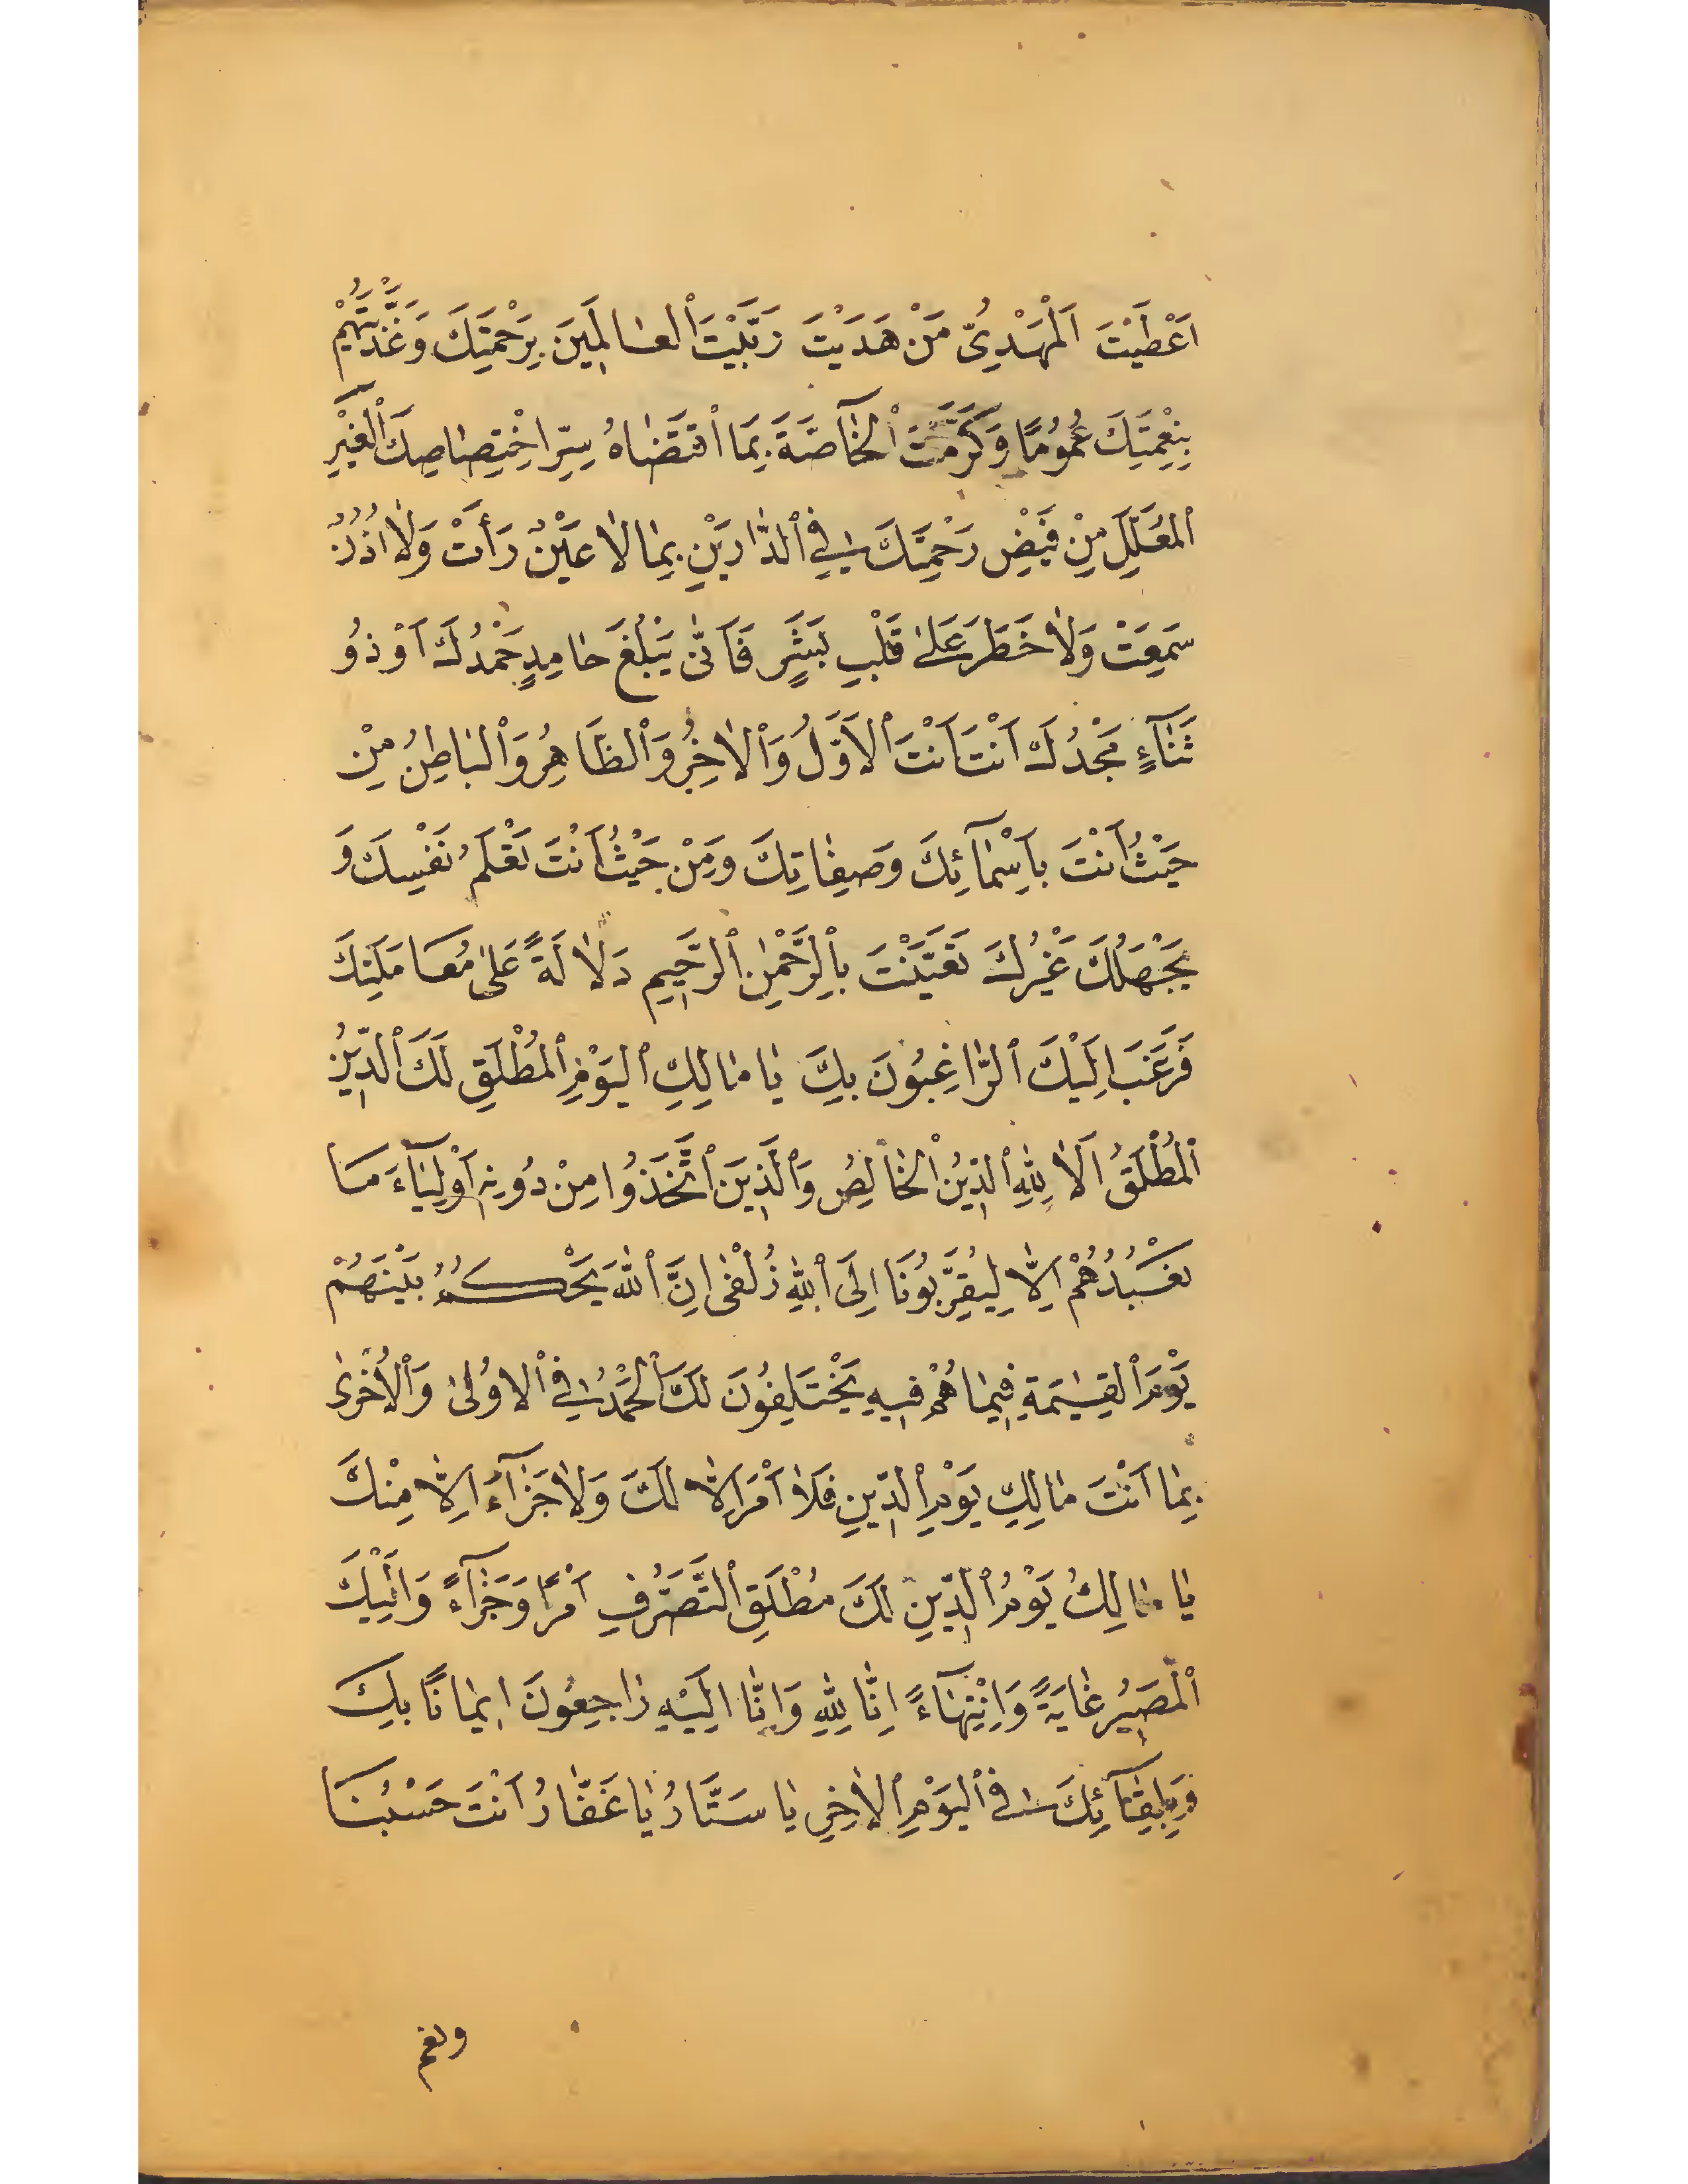 اَعْطَيْتَ اَلْمَهْدِىُّ مَنْ هَدَيْتَ رَبَّيْتَ ٱلْعَالَمِينَ بِرَحْمَتِكَ وَغَذَّيْتَهُمْ
بِنِعْمَتِكَ عُمُومًا وَكَرَّمْتَ ٱلْخَآصَّةَ بِمَا ٱقْتَضَاهُ سِرِّ اخْتِصَاصِكَ ٱلْغَيْرِ
ٱلْمُعَلَّلِ مِنْ فَيْضِ رَحْمَتِكَ فِي ٱلدَّارَيْنِ بِمَا لَا عَيْنٌ رَأَتْ وَلَا اُذُنٌ
سَمِعَتْ وَلَا خَطَرَ عَلَى قَلْبِ بَشَرٍ فَاَنّٰى يَبْلُغَ حَامِدٍ حَمْدُكَ اَوْ ذُو
ثَنَآءٍ مَجْدُكَ اَنْتَ اَنْتَ ٱلْاَوَّلُ وَٱلْاٰخِرُ وَٱلظَّاهِرُ وَٱلْبَاطِنُ مِنْ
حَيْثُ اَنْتَ بِاَسْمَآئِكَ وَصِفَاتِكَ وَمِنْ حَيْثُ اَنْتَ تَعْلَمُ نَفْسِكَ وَ
يَجْهَلُكَ غَيْرُكَ تَعَيَّنْتَ بِٱلرَّحْمٰنِ ٱلرَّحِيمِ دَلَالَةً عَلَى مُعَامَلَتِكَ
فَرَغَبَ اِلَيْكَ ٱلرَّاغِبُونَ بِكَ يَا مَالِكِ ٱلْيَوْمِ ٱلْمُطْلَقِ لَكَ ٱلدِّينُ
ٱلْمُطْلَقُ اَلَا لِلّٰهِ ٱلدِّينُ ٱلْخَالِصُ وَٱلَّذِينَ ٱتَّخَذُوا مِنْ دُونِهِ اَوْلِيَآءَ مَا
نَعْبُدُهُمْ اِلَّا لِيُقَرِّبُونَا اِلَى ٱللّٰهِ زُلْفٰى اِنَّ ٱللّٰهَ يَحْكُمُ بَيْنَهُمْ
يَوْمَ ٱلْقِيٰمَةِ فِيمَا هُمْ فِيهِ يَخْتَلِفُونَ لَكَ ٱلْحَمْدُ فِي ٱلْاُولٰى وَٱلْاُخْرٰى
بِمَا اَنْتَ مَالِكِ يَوْمِ ٱلدِّينِ فَلَا اَمْرَ اِلَّا لَكَ وَلَا جَزَآءَ اِلَّا مِنْكَ
يَا مَالِكُ يَوْمُ ٱلدِّينِ لَكَ مُطْلَقِ ٱلتَّصَرُّفِ اَمْرًا وَجَزَآءً وَاِلَيْكَ
ٱلْمَصِيرُ غَايَةً وَاِنْتِهَآءً اِنَّا لِلّٰهِ وَاِنَّا اِلَيْهِ رَاجِعُونَ اِيمَانًا بِكَ
وَبِلِقَآئِكَ فِي ٱلْيَوْمِ ٱلْاٰخِرِ يَا سَتَّارُ يَا غَفَّارُ اَنْتَ حَسْبُنَا
ونعم